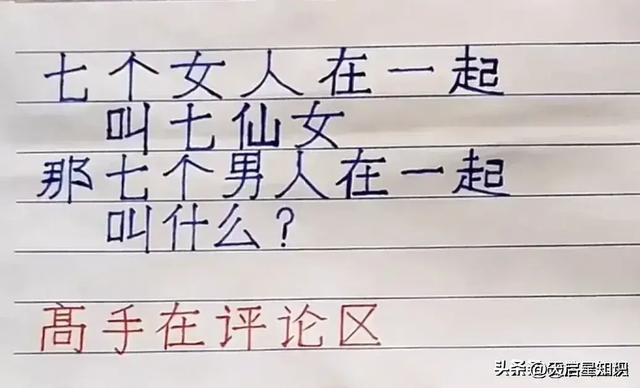 七个女人在一起
叫七仙女
那七个男人在一起
叫什么?
高手在评论区
头条@天启星知识